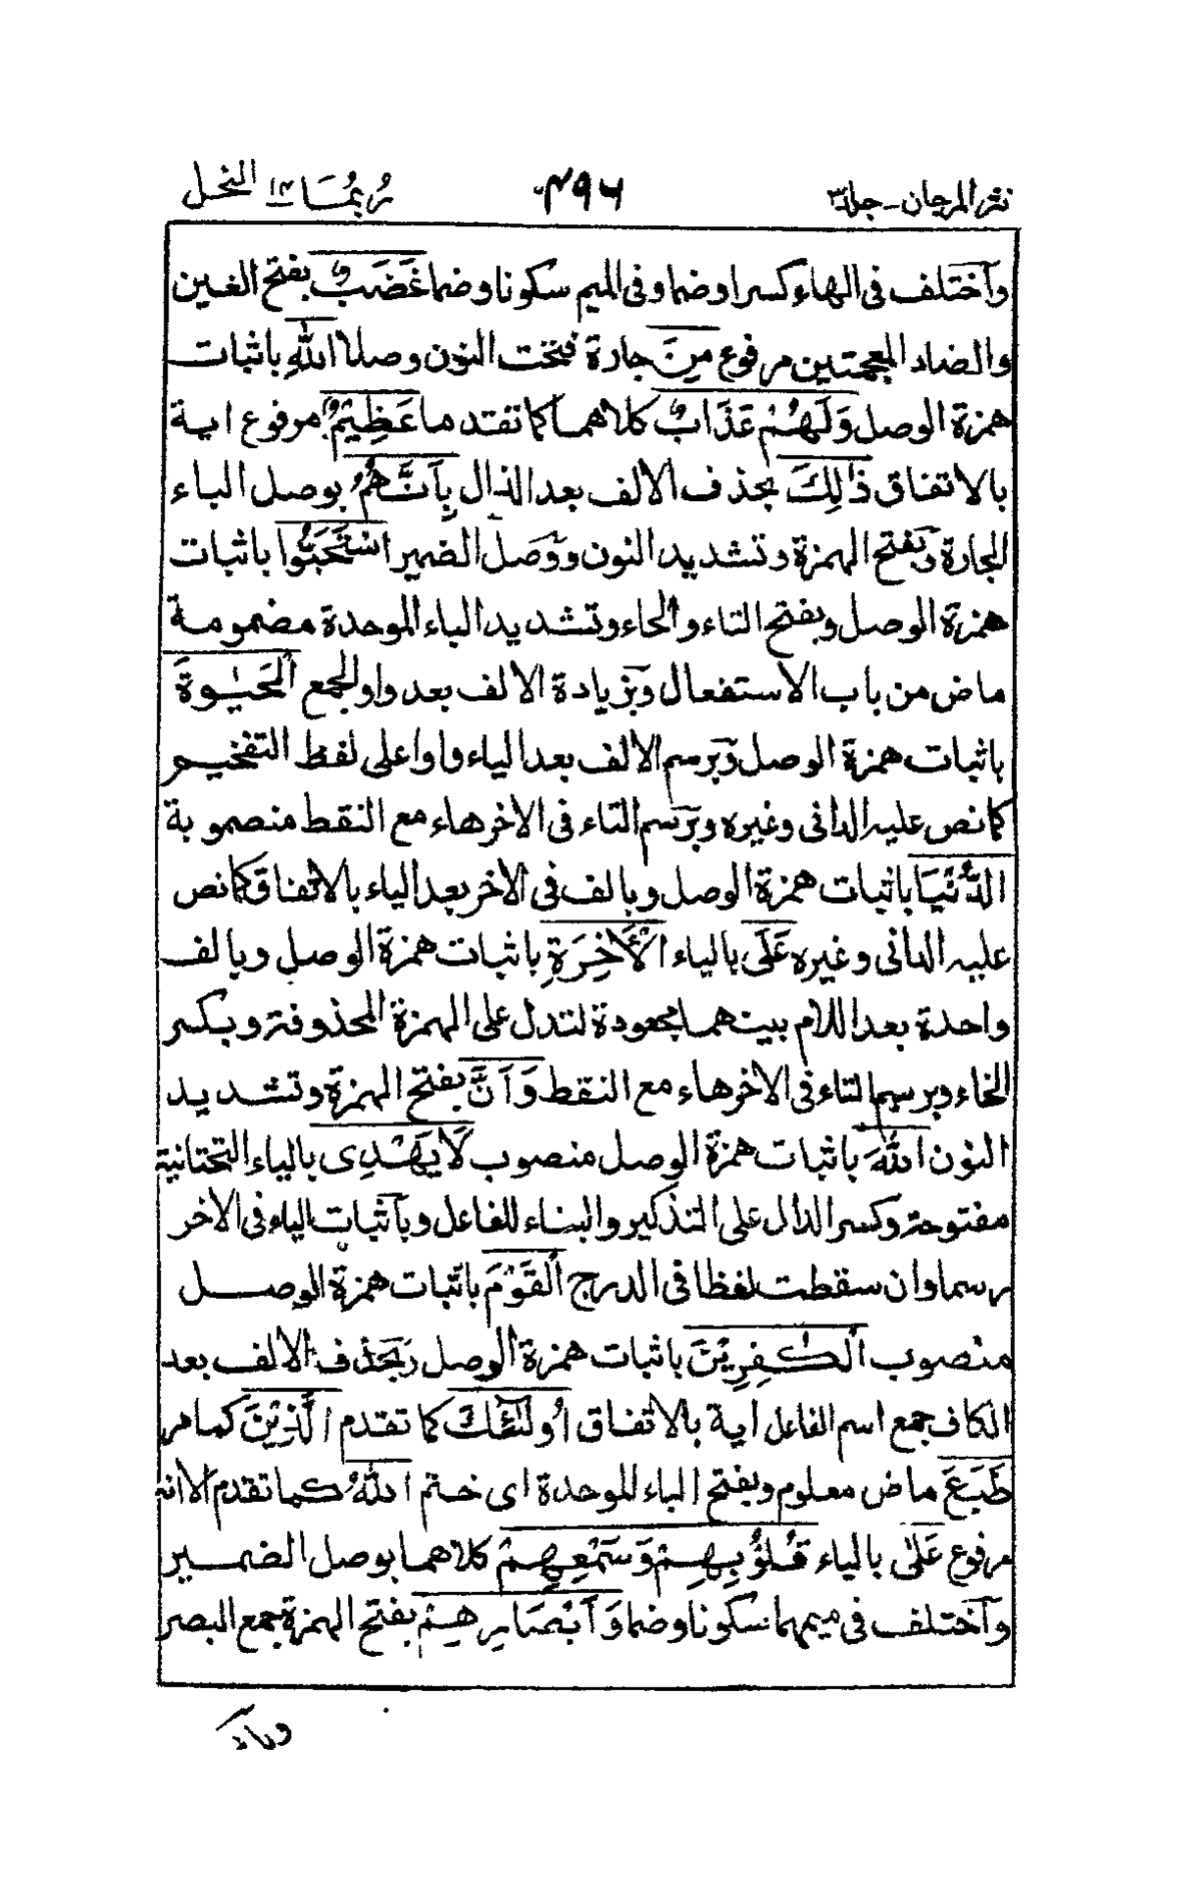 نثر المرجان - جلد ٣ ٤٩٦ رُبَمَا ١٤ النحل
واختلف فى الهاء كسرا وضما وفى الميم سكونا وضما غَضَبٌ بفتح الغين
والضاد المعجمتين مرفوع مِنَ جارة فتحت النون وصلا اللهِ باثبات
همزة الوصل وَلَهُمْ عَذَابٌ كلاهما كما تقدما عَظِيْمٌ مرفوع اية
بالاتفاق ذٰلِكَ بحذف الالف بعد الذال بِاَنَّهُمُ بوصل الباء
الجارة وبفتح الهمزة وتشديد النون ووصل الضمير اسْتَحَبُّوا باثبات
همزة الوصل وبفتح التاء والحاء وتشديد الباء الموحدة مضمومة
ماض من باب الاستفعال وبزيادة الالف بعد واو الجمع الْحَيٰوةَ
باثبات همزة الوصل وبرسم الالف بعد الياء واوا على لفظ التفخيم
كما نص عليه الدانى وغيره وبرسم التاء فى الاخر هاء مع النقط منصوبة
الدُّنْيَا باثبات همزة الوصل وبالف فى الاخر بعد الياء بالاتفاق كما نص
عليه الدانى وغيره عَلَى بالياء الْاٰخِرَةِ باثبات همزة الوصل وبالف
واحدة بعد اللام بينهما مجعودة لتدل على الهمزة المحذوفة وبكسر
الخاء وبرسم التاء فى الاخر هاء مع النقط وَاَنَّ بفتح الهمزة وتشديد
النون اللهَ باثبات همزة الوصل منصوب لَا يَهْدِى بالياء التحتانية
مفتوحة وكسر الدال على التذكير والبناء للفاعل وباثبات الياء فى الاخر
رسما وان سقطت لفظا فى الدرج الْقَوْمَ باثبات همزة الوصل
منصوب الْكٰفِرِيْنَ باثبات همزة الوصل وبحذف الالف بعد
الكاف جمع اسم الفاعل اية بالاتفاق اُولٰٓئِكَ كما تقدم الَّذِيْنَ كما مر
طَبَعَ ماض معلوم وبفتح الباء الموحدة اى ختم اللهُ كما تقدم الا انه
مرفوع عَلٰى بالياء قُلُوْبِهِمْ وَسَمْعِهِمْ كلاهما بوصل الضمير
واختلف فى ميمهما سكونا وضما وَاَبْصَارِهِمْ بفتح الهمزة جمع البصر